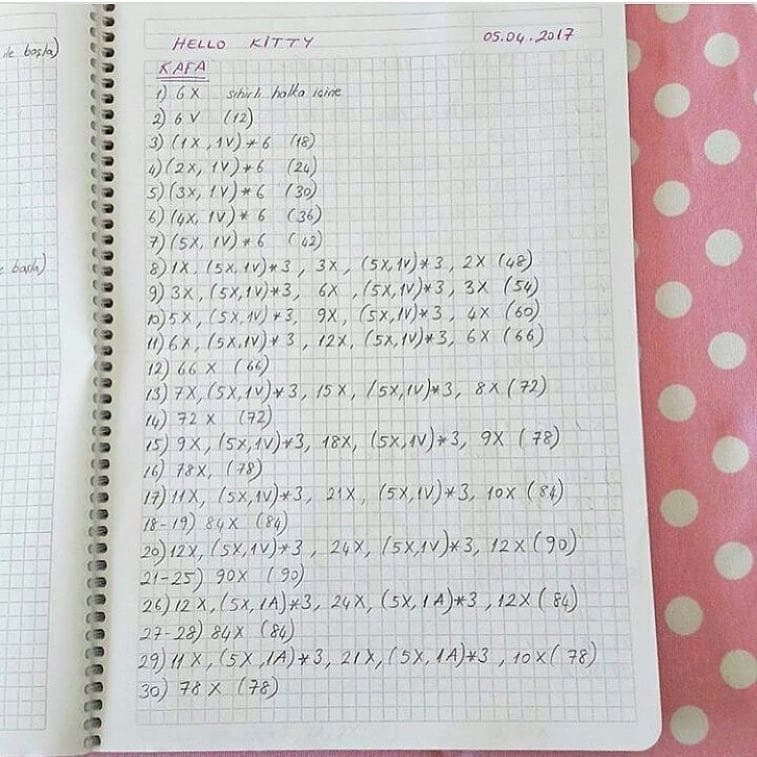 ile başla)
HELLO KİTTY 05.04.2017
KAFA
1) 6X sihirli halka içine
2) 6V (12)
3) (1X, 1V)*6 (18)
4) (2X, 1V)*6 (24)
5) (3X, 1V)*6 (30)
6) (4X, 1V)*6 (36)
7) (5X, 1V)*6 (42)
8) 1X, (5X,1V)*3, 3X, (5X,1V)*3, 2X (48)
9) 3X, (5X,1V)*3, 6X, (5X,1V)*3, 3X (54)
10) 5X, (5X,1V)*3, 9X, (5X,1V)*3, 4X (60)
11) 6X, (5X,1V)*3, 12X, (5X,1V)*3, 6X (66)
12) 66X (66)
13) 7X, (5X,1V)*3, 15X, (5X,1V)*3, 8X (72)
14) 72X (72)
15) 9X, (5X,1V)*3, 18X, (5X,1V)*3, 9X (78)
16) 78X, (78)
17) 11X, (5X,1V)*3, 21X, (5X,1V)*3, 10X (84)
18-19) 84X (84)
20) 12X, (5X,1V)*3, 24X, (5X,1V)*3, 12X (90)
21-25) 90X (90)
26) 12X, (5X,1A)*3, 24X, (5X,1A)*3, 12X (84)
27-28) 84X (84)
29) 11X, (5X,1A)*3, 21X, (5X,1A)*3, 10X (78)
30) 78X (78)
e başla)